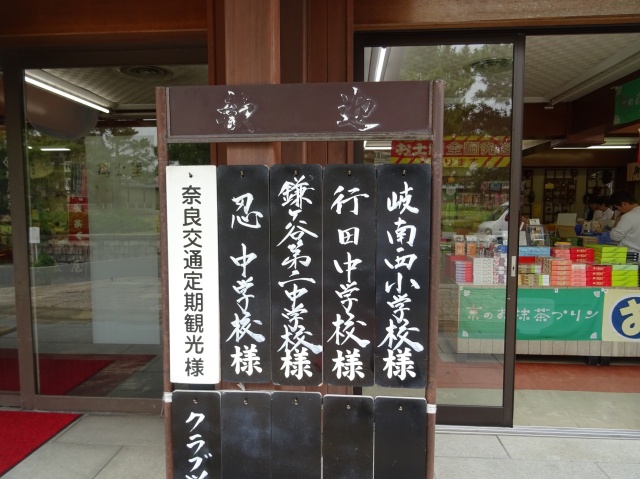 歓迎
岐南西小学校様
行田中学校様
鎌ヶ谷第二中学校様
忍中学校様
奈良交通定期観光様
クラブツ
京のお抹茶プリン
お